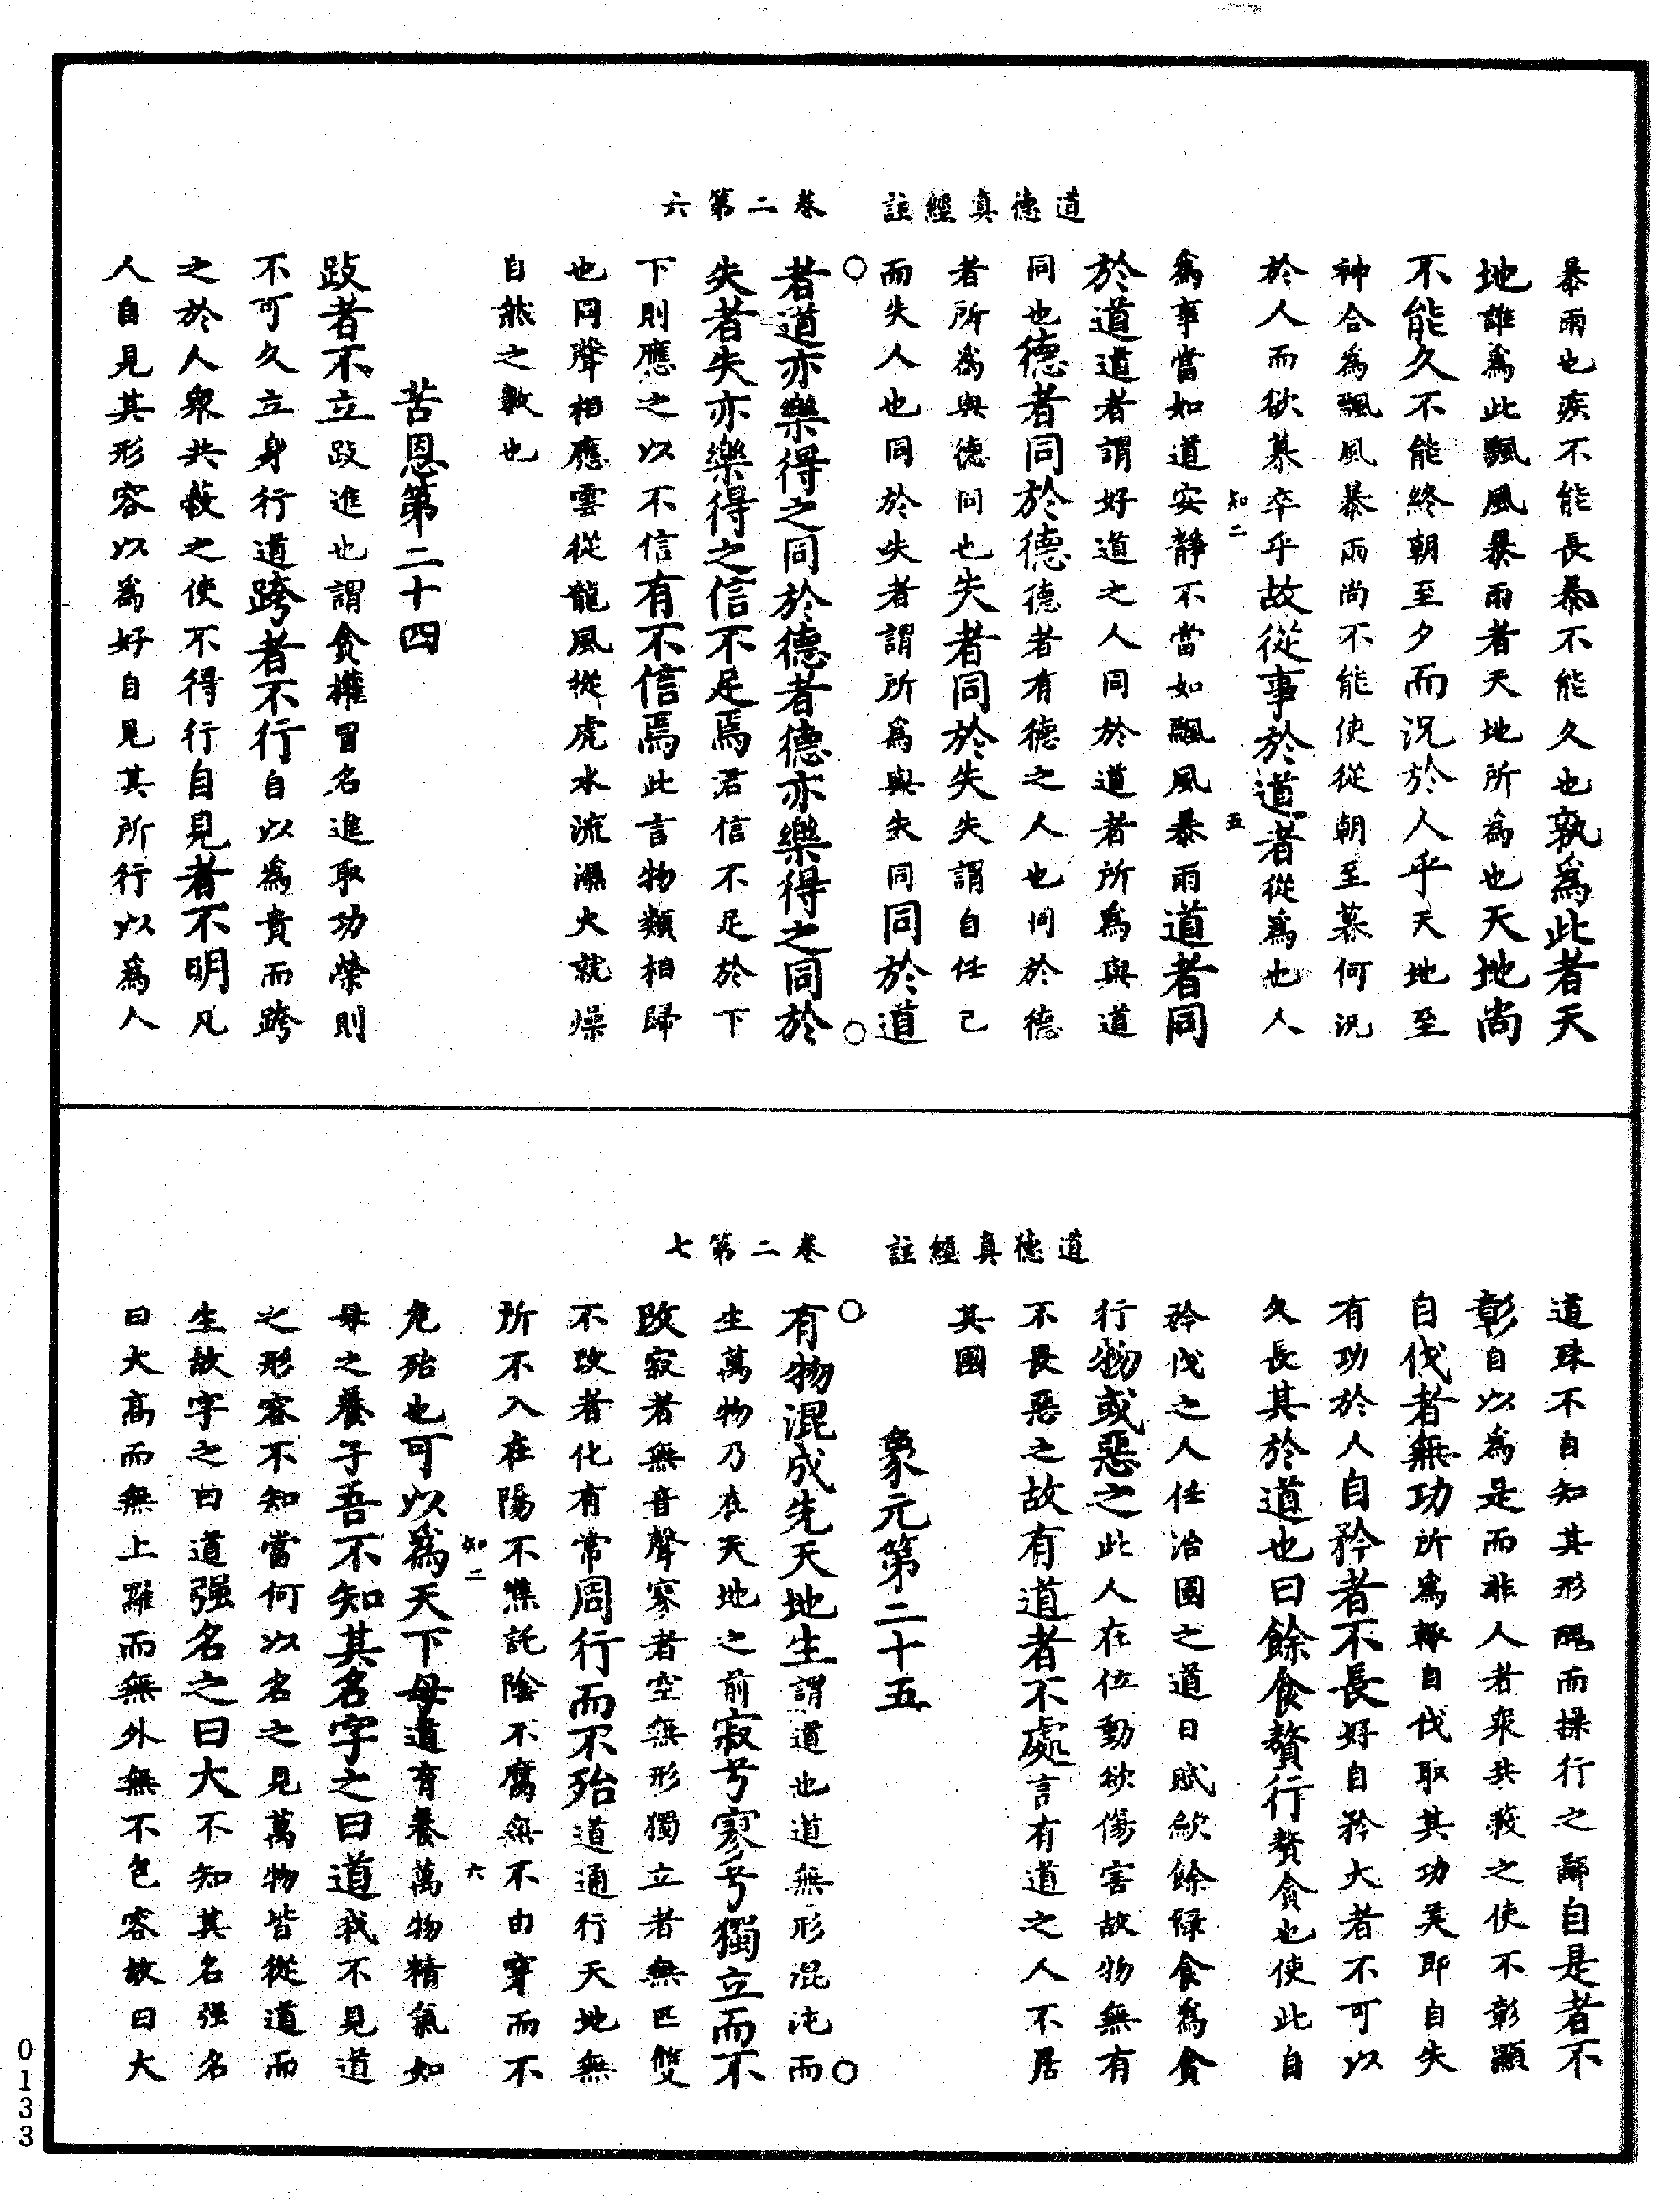 道德真經註　卷二第六
暴雨也疾不能長暴不能久也孰為此者天
地誰為此飄風暴雨者天地所為也天地尚
不能久不能終朝至夕而況於人乎天地至
神合為飄風暴雨尚不能使從朝至暮何況
於人而欲慕卒乎故從事於道者從為也人
知二　五
為事當如道安靜不當如飄風暴雨道者同
於道道者謂好道之人同於道者所為與道
同也德者同於德德者有德之人也同於德
者所為與德同也失者同於失失謂自任己
而失人也同於失者謂所為與失同同於道
者道亦樂得之同於德者德亦樂得之同於
失者失亦樂得之信不足焉君信不足於下
下則應之以不信有不信焉此言物類相歸
也同聲相應雲從龍風從虎水流濕火就燥
自然之數也
苦恩第二十四
跂者不立跂進也謂貪權冒名進取功榮則
不可久立身行道跨者不行自以為貴而跨
之於人衆共蔽之使不得行自見者不明凡
人自見其形容以為好自見其所行以為人
道德真經註　卷二第七
道殊不自知其形醜而操行之鄙自是者不
彰自以為是而非人者衆共蔽之使不彰顯
自伐者無功所為輙自伐取其功美即自失
有功於人自矜者不長好自矜大者不可以
久長其於道也曰餘食贅行贅貪也使此自
矜伐之人任治國之道日賦歛餘祿食為貪
行物或惡之此人在位動欲傷害故物無有
不畏惡之故有道者不處言有道之人不居
其國
象元第二十五
有物混成先天地生謂道也道無形混沌而
生萬物乃在天地之前寂兮寥兮獨立而不
改寂者無音聲寥者空無形獨立者無匹雙
不改者化有常周行而不殆道通行天地無
所不入在陽不燋託陰不腐無不由穿而不
知二　六
危殆也可以為天下母道育養萬物精氣如
母之養子吾不知其名字之曰道我不見道
之形容不知當何以名之見萬物皆從道而
生故字之曰道强名之曰大不知其名强名
曰大高而無上羅而無外無不包容故曰大
0133